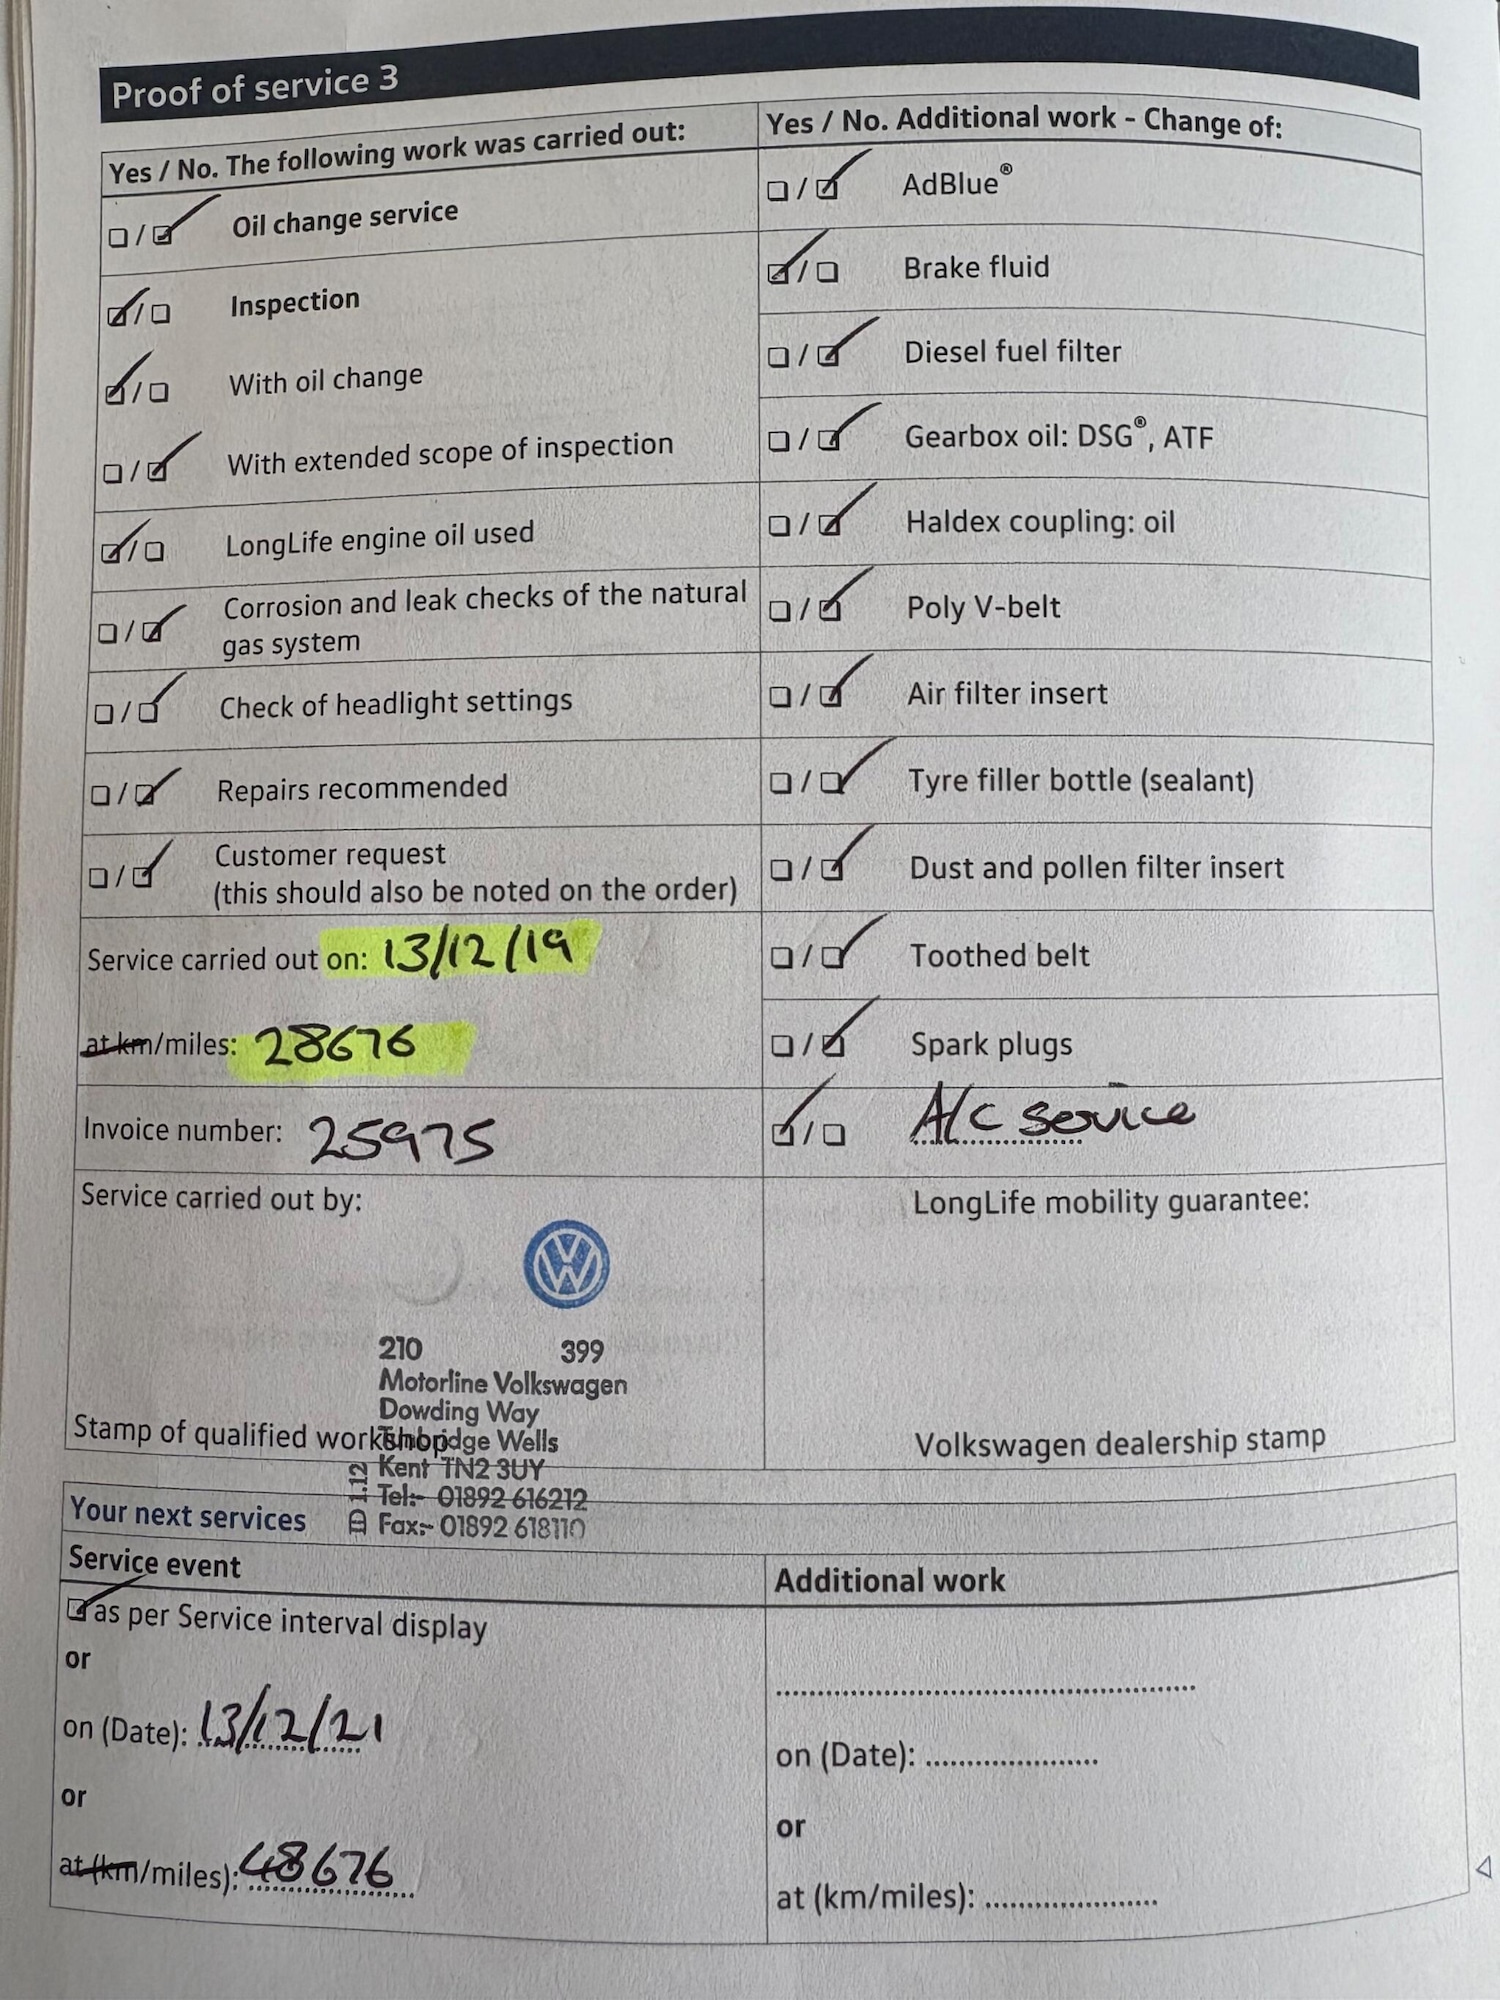 Proof of service 3
Yes / No. The following work was carried out:
Oil change service
Inspection
With oil change
With extended scope of inspection
LongLife engine oil used
Corrosion and leak checks of the natural
gas system
Check of headlight settings
Repairs recommended
Customer request
(this should also be noted on the order)
Service carried out on: 13/12/19
at km/miles: 28676
Invoice number: 25975
Service carried out by:
210 399
Motorline Volkswagen
Dowding Way
Tunbridge Wells
Kent TN2 3UY
Tel:- 01892 616212
Fax:- 01892 618110
ID 1.12
Stamp of qualified workshop
Yes / No. Additional work - Change of:
AdBlue®
Brake fluid
Diesel fuel filter
Gearbox oil: DSG®, ATF
Haldex coupling: oil
Poly V-belt
Air filter insert
Tyre filler bottle (sealant)
Dust and pollen filter insert
Toothed belt
Spark plugs
A/C service
LongLife mobility guarantee:
Volkswagen dealership stamp
Your next services
Service event
as per Service interval display
or
on (Date): 13/12/21
or
at (km/miles): 48676
Additional work
on (Date):
or
at (km/miles):